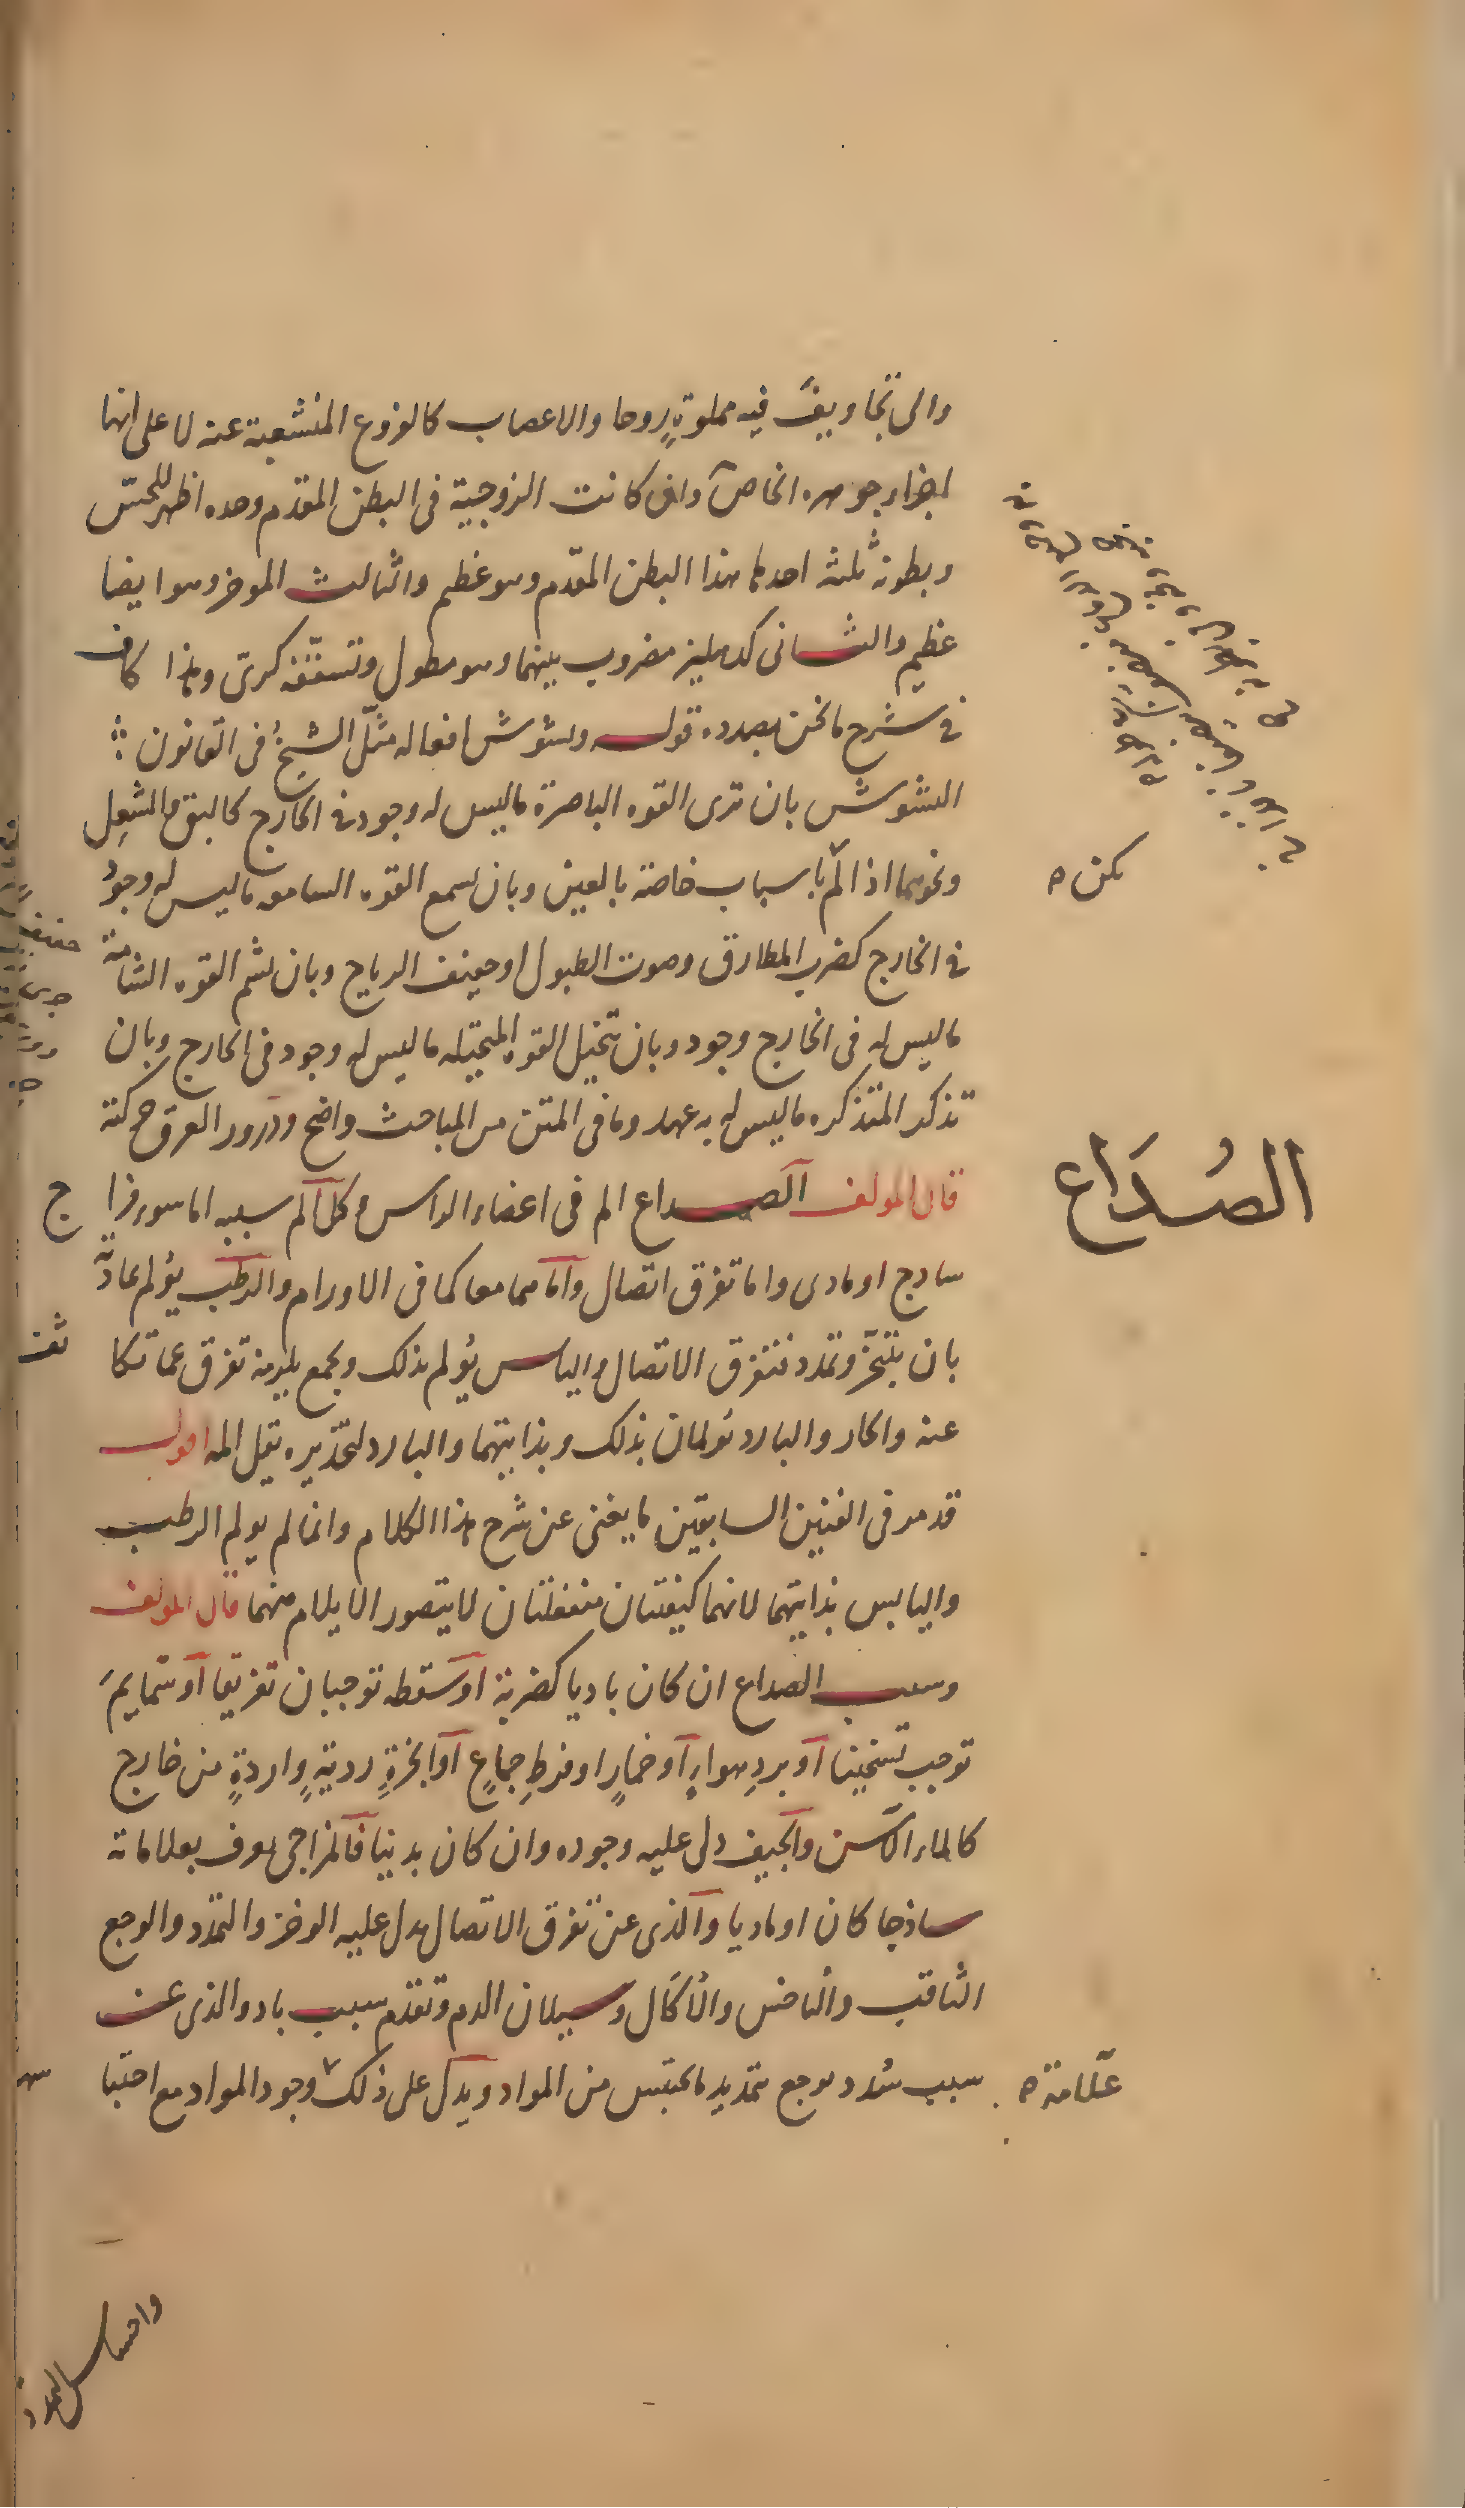 والى تجاويف فيه مملوة روحا والاعصاب كالفروع المنشعبة عنه لا على انها
اجزاء جوهره الخاص وان كانت الزوجية فى البطن المقدم وحده اظهر للحس
وبطونه ثلثه احدها هذا البطن المقدم وهو عظيم والثالث الموخر وهو ايضا
عظيم والثانى كدهليز مضروب بينهما وهو مطول وتسقفه كرىّ وهذا كاف
فى شرح ما نحن بصدده قوله وتشوش افعاله مثّل الشيخ فى القانون
التشوش بان ترى القوه الباصرة ما ليس له وجود فى الخارج كالبق والشعل
ونحوهما اذا لم باسباب خاصة بالعين وبان تسمع القوه السامعه ما ليس له وجود
يكن ه
فى الخارج كضرب المطارق وصوت الطبول او حفيف الرياح وبان تشم القوه الشامة
ما ليس له فى الخارج وجود وبان تتخيل القوه المتخيله ما ليس له وجود فى الخارج وبان
تذكر المتذكره ما ليس له به عهد وما فى المتن من المباحث واضح ودرور العرق حركته
الصُدَاع
قال المولف الصداع الم فى اعضاء الراس وكل الم سببه اما سوء مزا ج
ساذج او مادى واما تفرق اتصال واما هما معا كما فى الاورام والرطب يؤلم بمادته
بان يتبخر وتمدد فتفرق الاتصال واليابس يؤلم بذلك وبجمع يلزمه تفرق عما تكا ثف
عنه والحار والبارد يؤلمان بذلك وبذاتيهما والبارد لتخديره يقل المه اقول
قد مر فى الفنين السابقين ما يغنى عن شرح هذا الكلام وانما لم يولم الرطب
واليابس بذاتيهما لانهما كيفيتان منفعلتان لا يتصور الايلام منهما قال المولف
وسبب الصداع ان كان باديا كضربة او سقطه توجبان تفريقا او سمايم
توجب تسخينا او بردِ هواءٍ او خمارٍ او فرطِ جماعٍ او ابخرةٍ رديةٍ واردةٍ من خارج
كالماء الآسن والجيف دل عليه وجوده وان كان بدنيا فالمزاجى يعرف بعلاماته
ساذجا كان او ماديا والذى عن تفرق الاتصال يدل عليه الوخز والتمدد والوجع
الثاقب والناخس والأكّال وسيلان الدم وتقدم سبب باد والذى عن
سبب سُدد يوجع بتمديد ما يحتبس من المواد ويدل على ذلك وجود المواد مع احتبا سها
علامة ه
واحساس